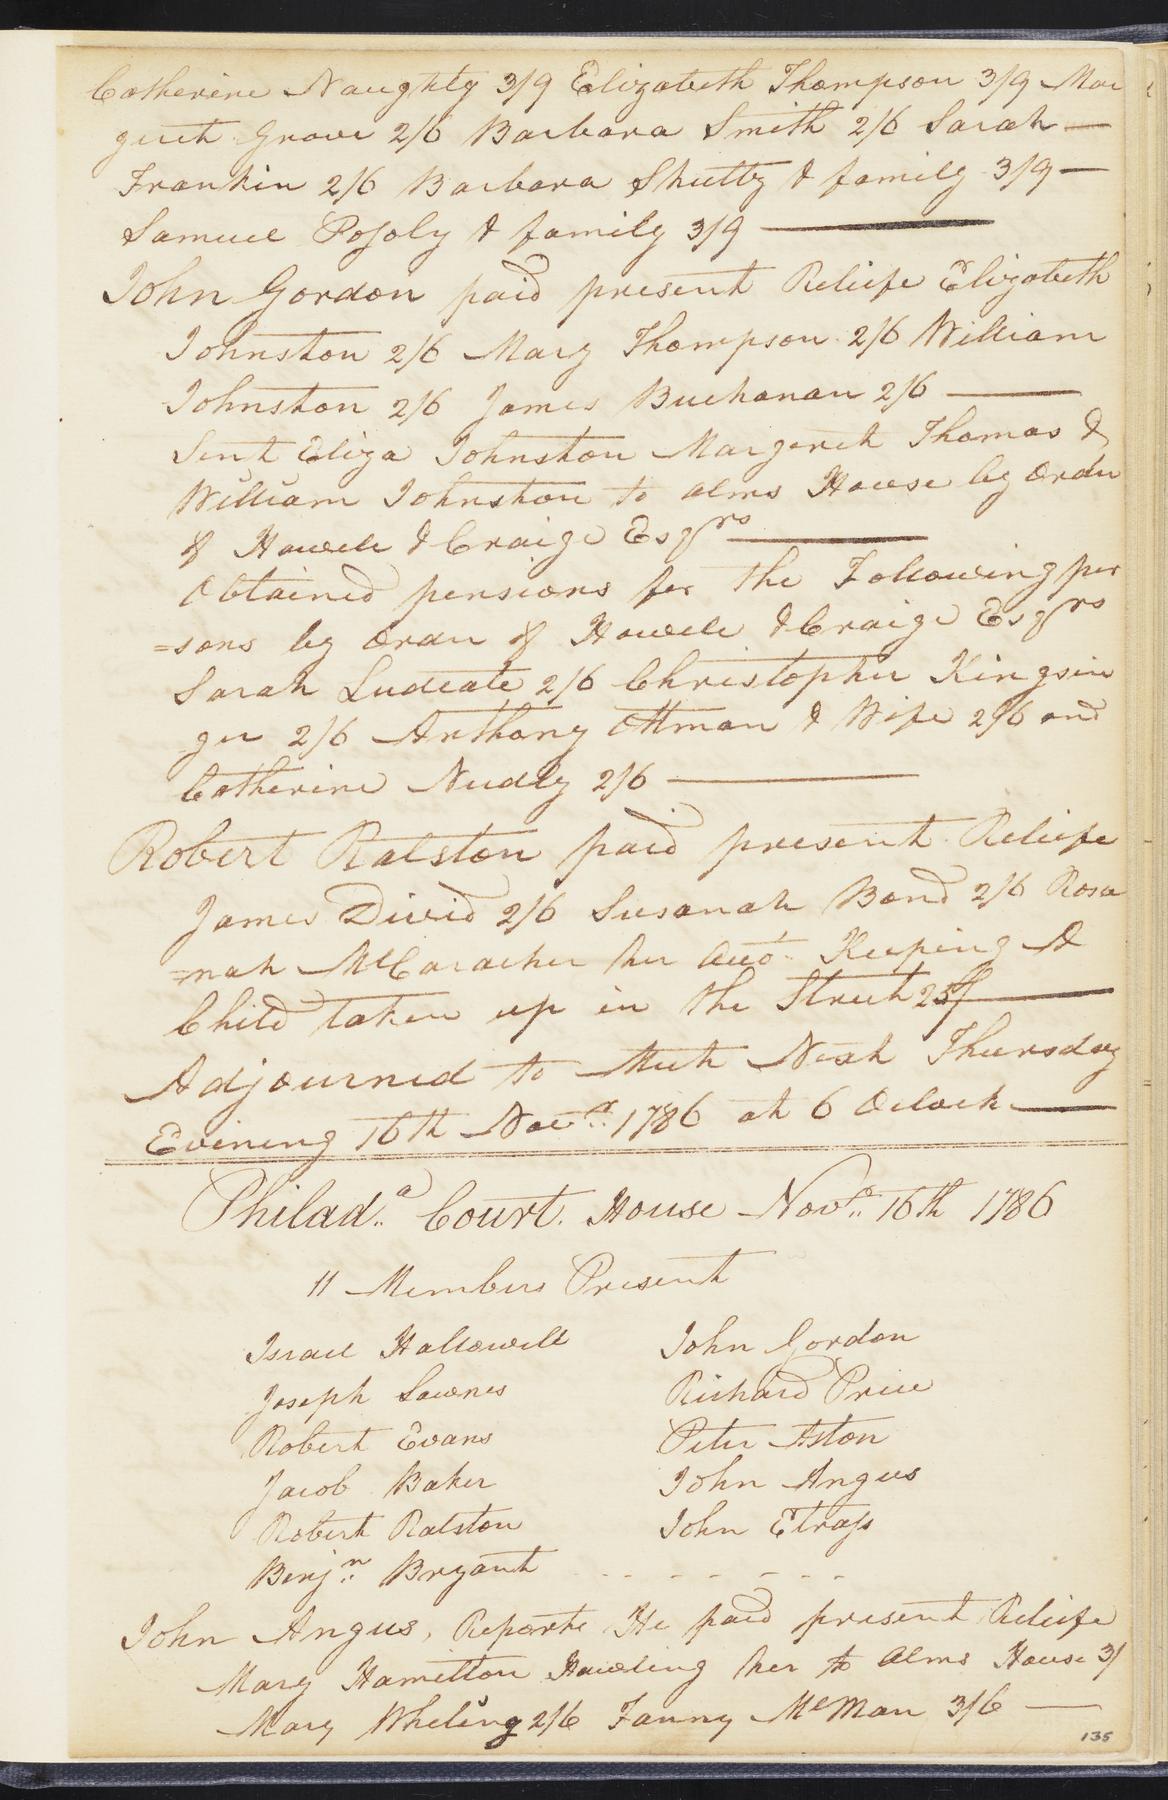 Catherine Naughty 3/9 Elizabeth Thompson 3/9 Mar
gret Grove 2/6 Barbara Smith 2/6 Sarah —
Frankin 2/6 Barbara Shutty & family 3/9 —
Samuel & family 3/9 —
John Gordon paid present Reliefe Elizabeth
Johnston 2/6 Mary Thompson 2/6 William
Johnston 2/6 James Buchanan 2/6 —
Sent Eliza Johnston Margeret Thomas &
William Johnston to alms House by order
of Howell & Craige Esqrs —
Obtained pensions for the Following per
=sons by order of Howell & Craige Esqrs
Sarah Ludcate 2/6 Christopher Kingsin
ger 2/6 Anthony Ottman & Wife 2/6 and
Catherine Nudly 2/6 —
Robert Ralston paid present Reliefe
James Divid 2/6 Susanah Bond 2/6 Rosa
=nah McCaracher her Keeping A
Child taken up in the Street 25/ —
Adjourned to Meet Next Thursday
Evening 16th Novr 1786 at 6 Oclock —
Philada Court House Novr 16th 1786
11 Members Present
Israel Hallowell John Gordon
Joseph Lownes Richard Price
Robert Evans Peter Aston
Jacob Baker John Angus
Robert Ralston John Strass
Benjn Bryant - - - - - - -
John Angus, Reports He paid present Reliefe
Mary Hamilton Hawling her to Alms House 3/
Mary Wheling 2/6 Fanny McMan 3/6 —
135